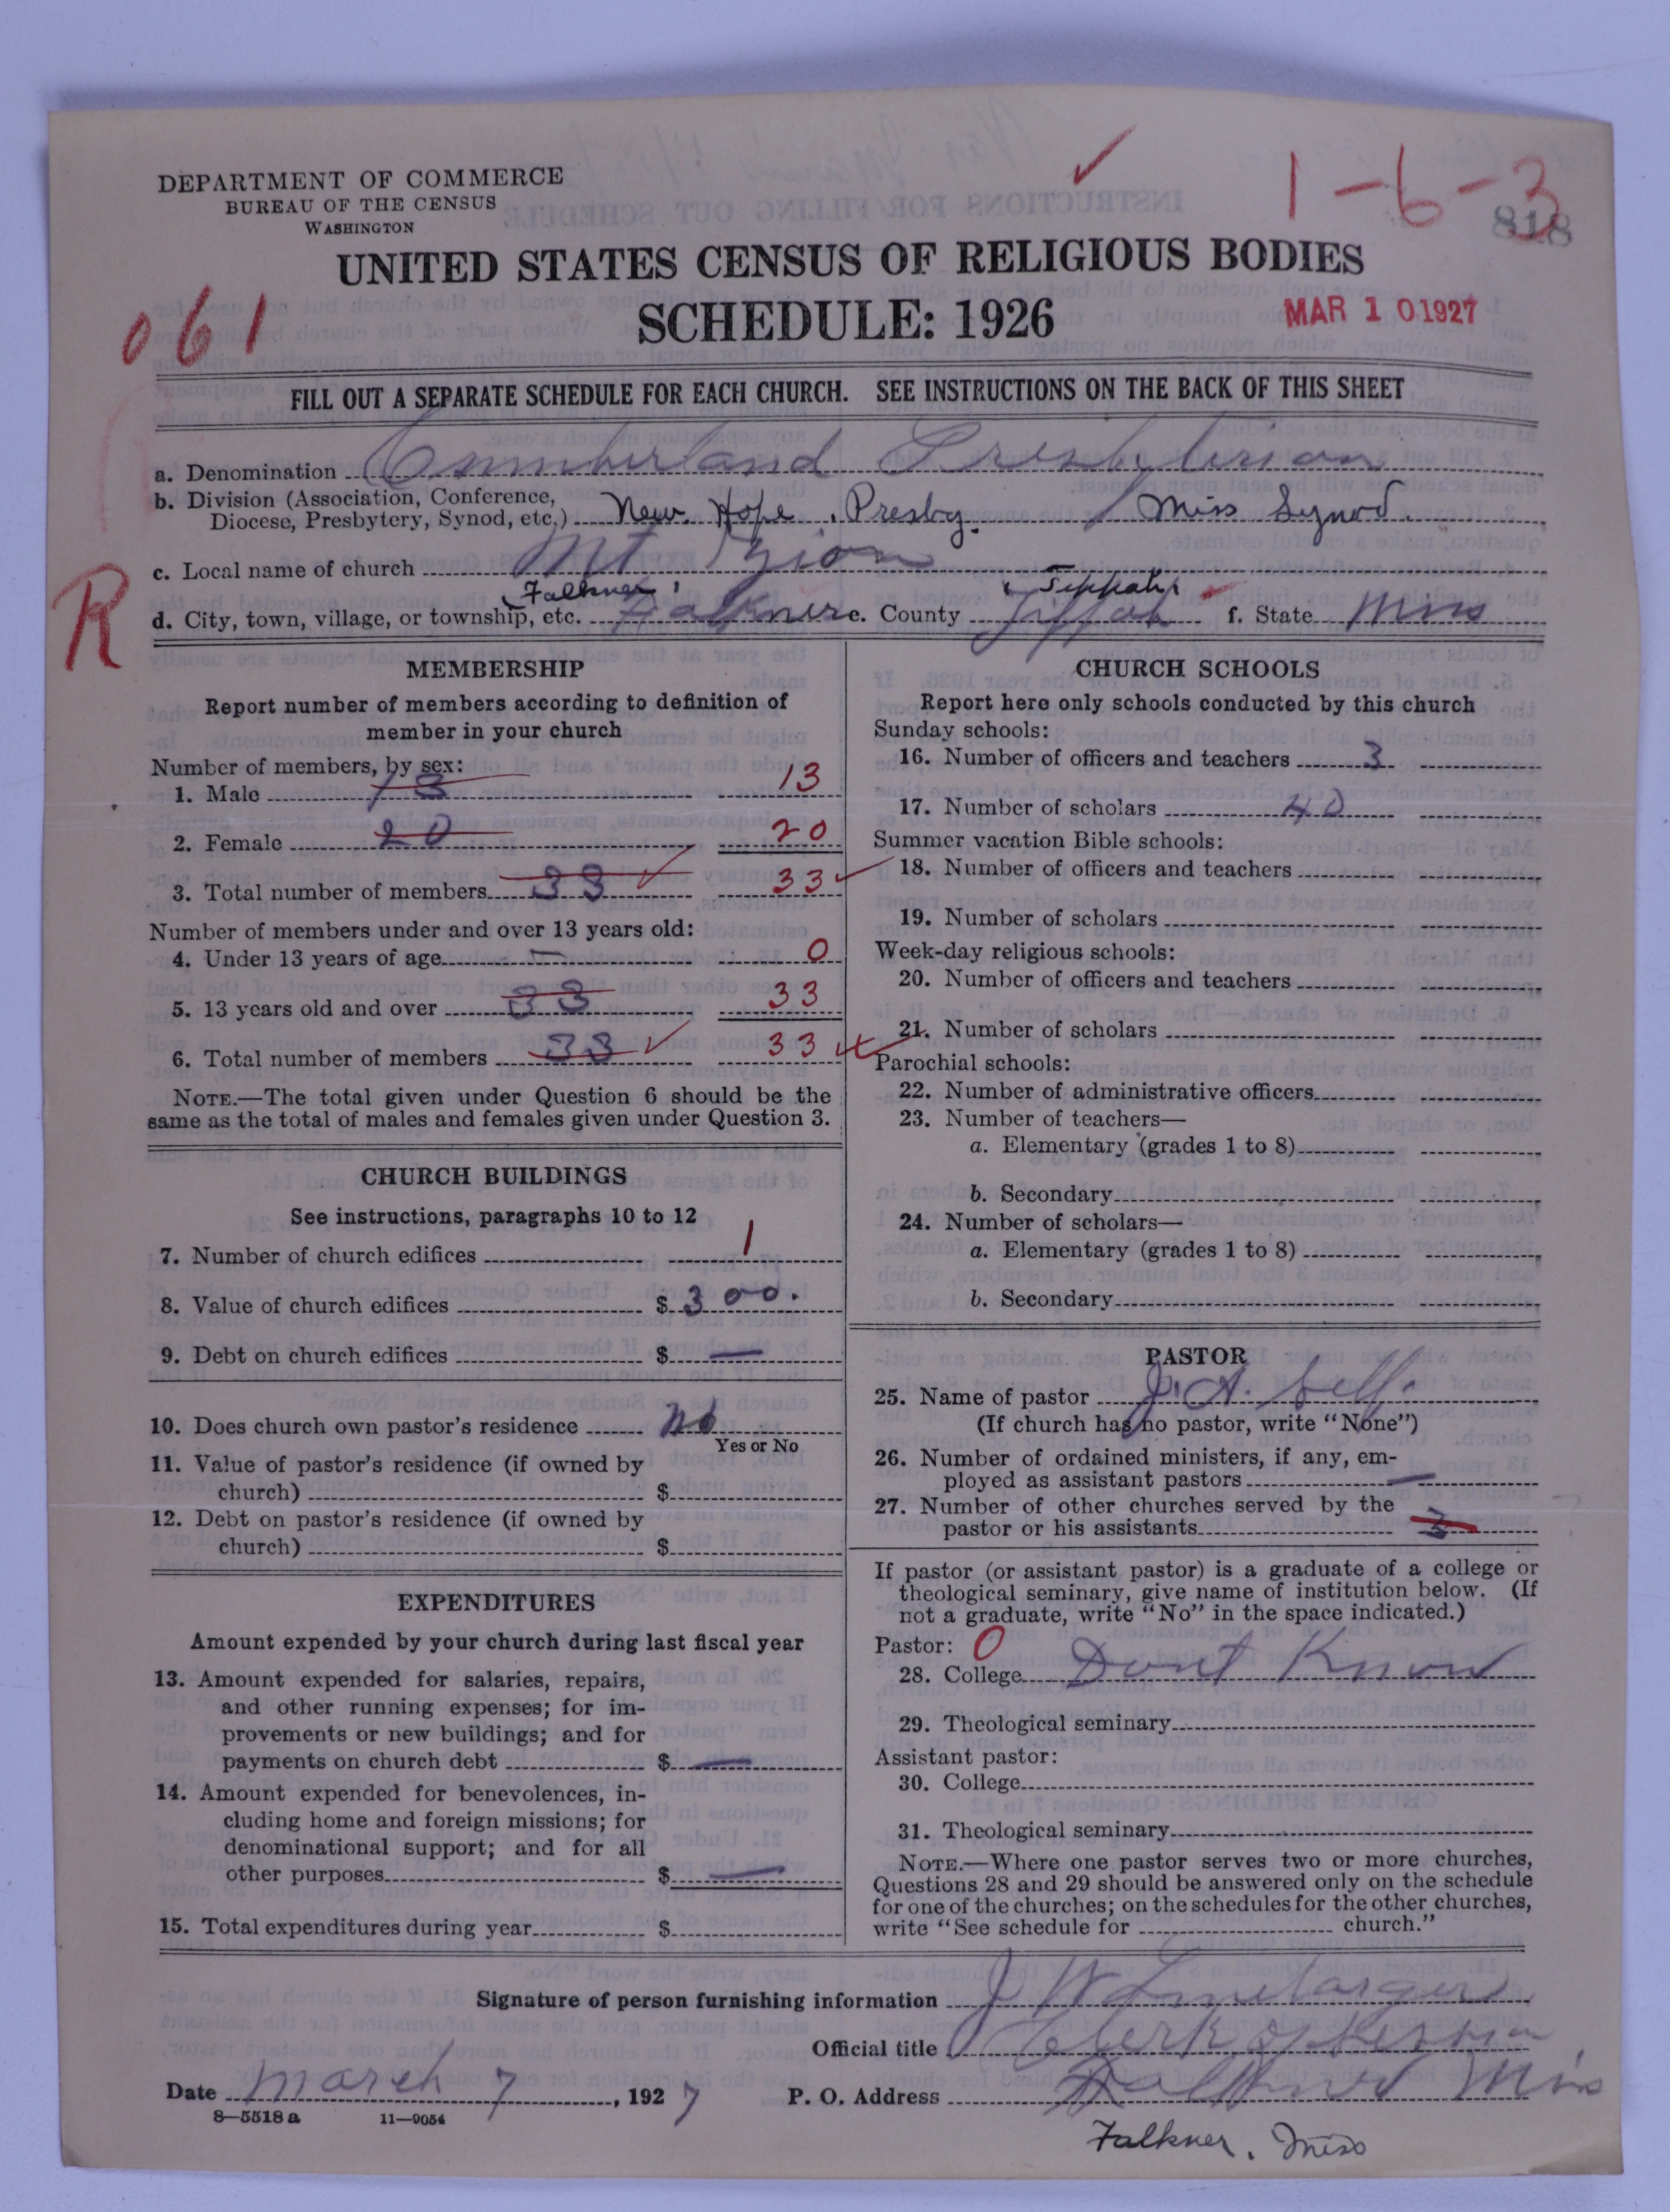 1-6-3
818
DEPARTMENT OF COMMERCE
BUREAU OF THE CENSUS
WASHINGTON
UNITED STATES CENSUS OF RELIGIOUS BODIES
SCHEDULE: 1926
MAR 10 1927
061
FILL OUT A SEPARATE SCHEDULE FOR EACH CHURCH. SEE INSTRUCTIONS ON THE BACK OF THIS SHEET
a. Denomination Cumberland Presbyterian
b. Division (Association, Conference,
Diocese, Presbytery, Synod, etc.) New Hope Presby. / Miss Synod
c. Local name of church Mt Zion
Falkner Tippah
R
d. City, town, village, or township, etc. Falkner e. County Tippah f. State Miss
MEMBERSHIP
Report number of members according to definition of
member in your church
Number of members, by sex:
1. Male 13 13
2. Female 20 20
3. Total number of members 33 33
Number of members under and over 13 years old:
4. Under 13 years of age — 0
5. 13 years old and over 33 33
6. Total number of members 33 33
NOTE.—The total given under Question 6 should be the
same as the total of males and females given under Question 3.
CHURCH BUILDINGS
See instructions, paragraphs 10 to 12
7. Number of church edifices 1
8. Value of church edifices $ 300.
9. Debt on church edifices $ —
10. Does church own pastor's residence No
Yes or No
11. Value of pastor's residence (if owned by
church) $
12. Debt on pastor's residence (if owned by
church) $
EXPENDITURES
Amount expended by your church during last fiscal year
13. Amount expended for salaries, repairs,
and other running expenses; for im-
provements or new buildings; and for
payments on church debt $ —
14. Amount expended for benevolences, in-
cluding home and foreign missions; for
denominational support; and for all
other purposes $ —
15. Total expenditures during year $
CHURCH SCHOOLS
Report here only schools conducted by this church
Sunday schools:
16. Number of officers and teachers 3
17. Number of scholars 40
Summer vacation Bible schools:
18. Number of officers and teachers
19. Number of scholars
Week-day religious schools:
20. Number of officers and teachers
21. Number of scholars
Parochial schools:
22. Number of administrative officers
23. Number of teachers—
a. Elementary (grades 1 to 8)
b. Secondary
24. Number of scholars—
a. Elementary (grades 1 to 8)
b. Secondary
PASTOR
25. Name of pastor J. A.
(If church has no pastor, write "None")
26. Number of ordained ministers, if any, em-
ployed as assistant pastors —
27. Number of other churches served by the
pastor or his assistants 3
If pastor (or assistant pastor) is a graduate of a college or
theological seminary, give name of institution below. (If
not a graduate, write "No" in the space indicated.)
Pastor: 0
28. College Dont Know
29. Theological seminary
Assistant pastor:
30. College
31. Theological seminary
NOTE.—Where one pastor serves two or more churches,
Questions 28 and 29 should be answered only on the schedule
for one of the churches; on the schedules for the other churches,
write "See schedule for church."
Signature of person furnishing information J W
Official title Clerk of Session
Date March 7, 1927 P. O. Address Falkner Miss
8-5518 a 11-9054
Falkner, Miss